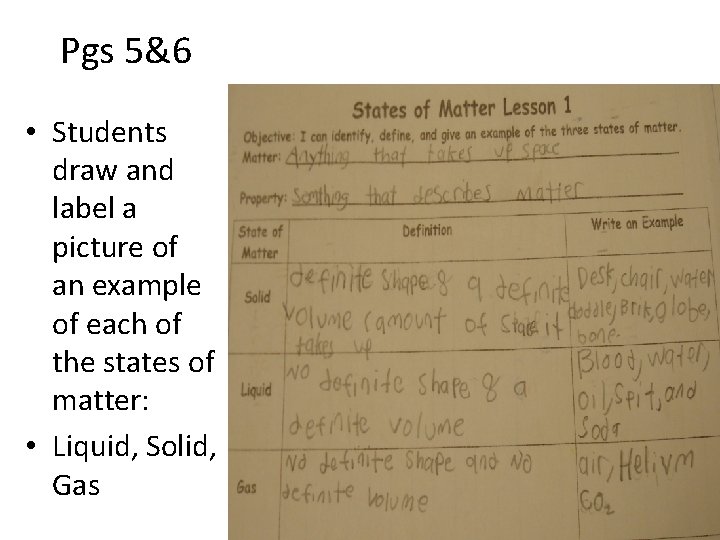 Pgs 5&6
• Students
draw and
label a
picture of
an example
of each of
the states of
matter:
• Liquid, Solid,
Gas
States of Matter Lesson 1
Objective: I can identify, define, and give an example of the three states of matter.
Matter: Anything that takes up space
Property: Somthing that describes matter
State of
Matter
Definition
Write an Example
Solid
definite shape & a definite
volume (amount of space it
takes up
Desk, chair, water
boddle, Brik, globe,
bone.
Liquid
No definite shape & a
definite volume
Blood, water,
oil, Spit, and
Soda
Gas
No definite shape and No
definite volume
air, Helium
CO2